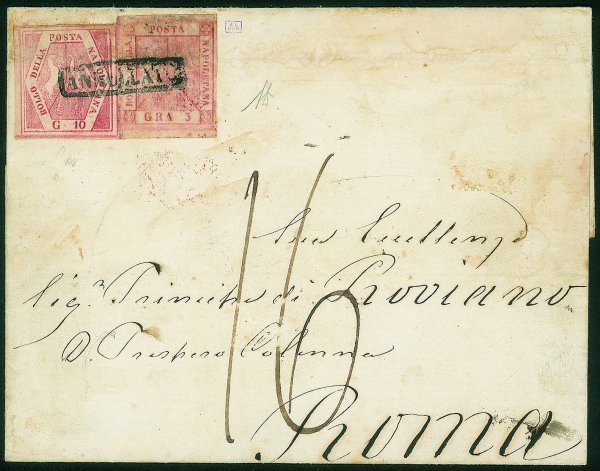 BOLLO DELLA POSTA NAPOLETANA
G. 10
BOLLO DELLA POSTA NAPOLETANA
GRA 5
ANNULLATO
16
Sua Eccellenza
Sigr. Principe di Roviano
D. Prospero Colonna
Roma